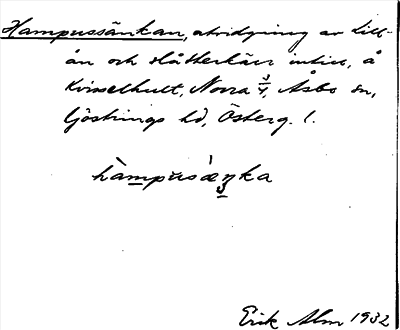 Hampussänkan, utvidgning av Lill-
ån och slåtterkärr intill, å
Kvisselhult, Norra 3/4, Åsbo sn,
Göstrings hd, Österg. l.
hampusäŋka
Erik Alm 1932